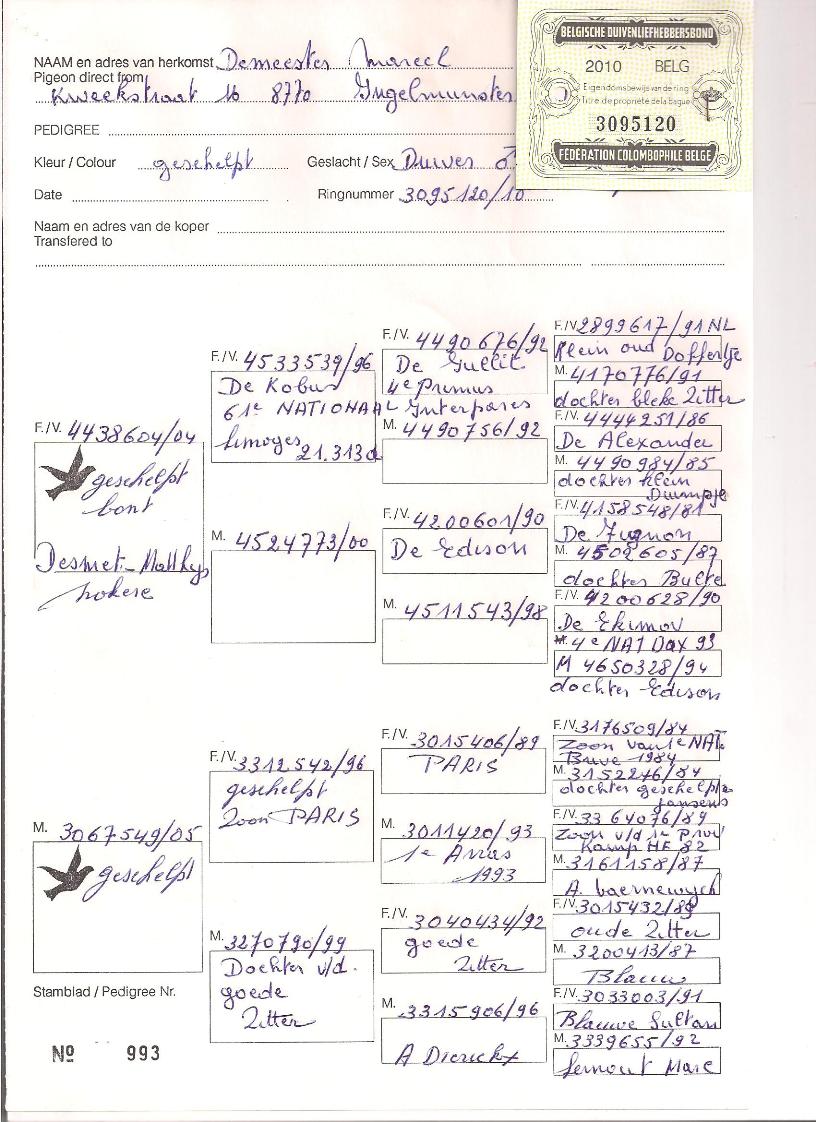 NAAM en adres van herkomst Demeester Marcel
Pigeon direct from
Kweekstraat 16 8770 Ingelmunster
PEDIGREE
Kleur / Colour geschelpt Geslacht / Sex Duiver ♂
Date Ringnummer 3095120/10
Naam en adres van de koper
Transfered to
BELGISCHE DUIVENLIEFHEBBERSBOND
2010 BELG
Eigendomsbewijs van de ring
Titre de propriété de la bague
3095120
FÉDÉRATION COLOMBOPHILE BELGE
F./V. 4438604/04
geschelpt
bont
Desmet-Matthys
nokere
F./V. 4533539/96
De Kobus
61e NATIONAAL
limoges
21.313d
M. 4524773/00
F./V. 4490676/92
De Gullit
4e Primus
Interpares
M. 4490756/92
F./V. 4200601/90
De Edison
M. 4511543/98
F./V. 2899617/91 NL
Klein oud Doffertje
M. 4170776/91
dochter bleke Zitter
F./V. 4444251/86
De Alexander
M. 4490984/85
dochter klein
Duimpje
F./V. 4158548/81
De Fignon
M. 4502605/87
dochter Bulte
F./V. 4200628/90
De Ekimov
4e NAT Dax 93
M 4650328/94
dochter Edison
M. 3067549/05
geschelpt
F./V. 3312542/96
geschelpt
Zoon PARIS
M. 3270790/99
Dochter v/d.
goede
Zitter
F./V. 3015406/89
PARIS
M. 3011420/93
1e Arras
1993
F./V. 3040434/92
goede
Zitter
M. 3315906/96
A Dierickx
F./V. 3176509/84
Zoon van 1e NAT
1984
M. 3152246/84
dochter geschelpte
Jansens
F./V. 3364076/89
Zoon v/d 1e Prov
Kamp HF 82
M. 3161158/87
A.
F./V. 3015432/89
oude Zitter
M. 3200413/87
Blauw
F./V. 3033003/91
Blauwe Sultan
M. 3339655/92
Lernout Marc
Stamblad / Pedigree Nr.
Nº 993